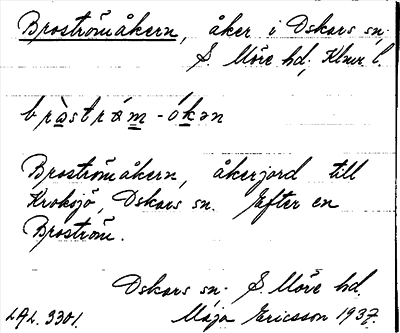 Broströmåkern, åker i Oskars sn.
S. Möre hd, Klmr l.
bråstrám-ókən
Broströmåkern, åkerjord till
Kroksjö, Oskars sn. Efter en
Broström.
Oskars sn. S Möre hd.
LAL. 3301. Maja Ericsson 1937.